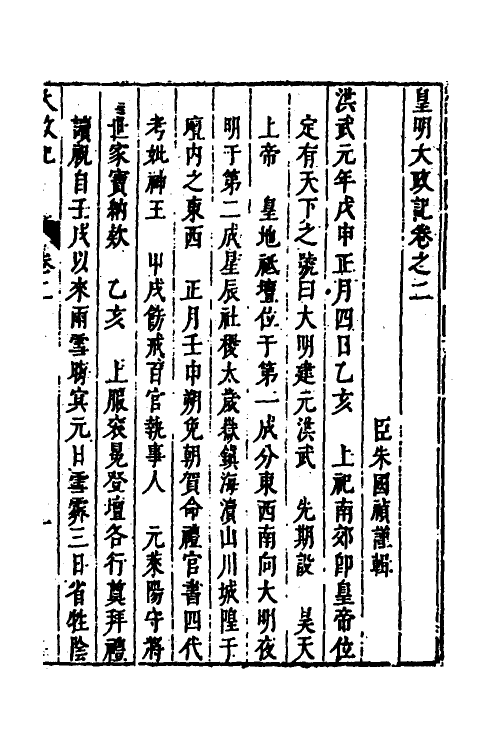 皇明大政記卷之二
臣朱國禎謹輯
洪武元年戊申正月四日乙亥　上祀南郊卽皇帝位
定有天下之號曰大明建元洪武　先期設　昊天
上帝　皇地祇壇位于第一成分東西南向大明夜
明于第二成星辰社稷太歲嶽鎮海瀆山川城隍于
壝內之東西　正月壬申朔免朝賀命禮官書四代
考妣神主　甲戌飭戒百官執事人　元萊陽守將
世家寶納欵　乙亥　上服衮冕登壇各行奠拜禮
讀祝自壬戌以來雨雪晦冥元日雪霽三日省牲陰
大政記　卷二　一